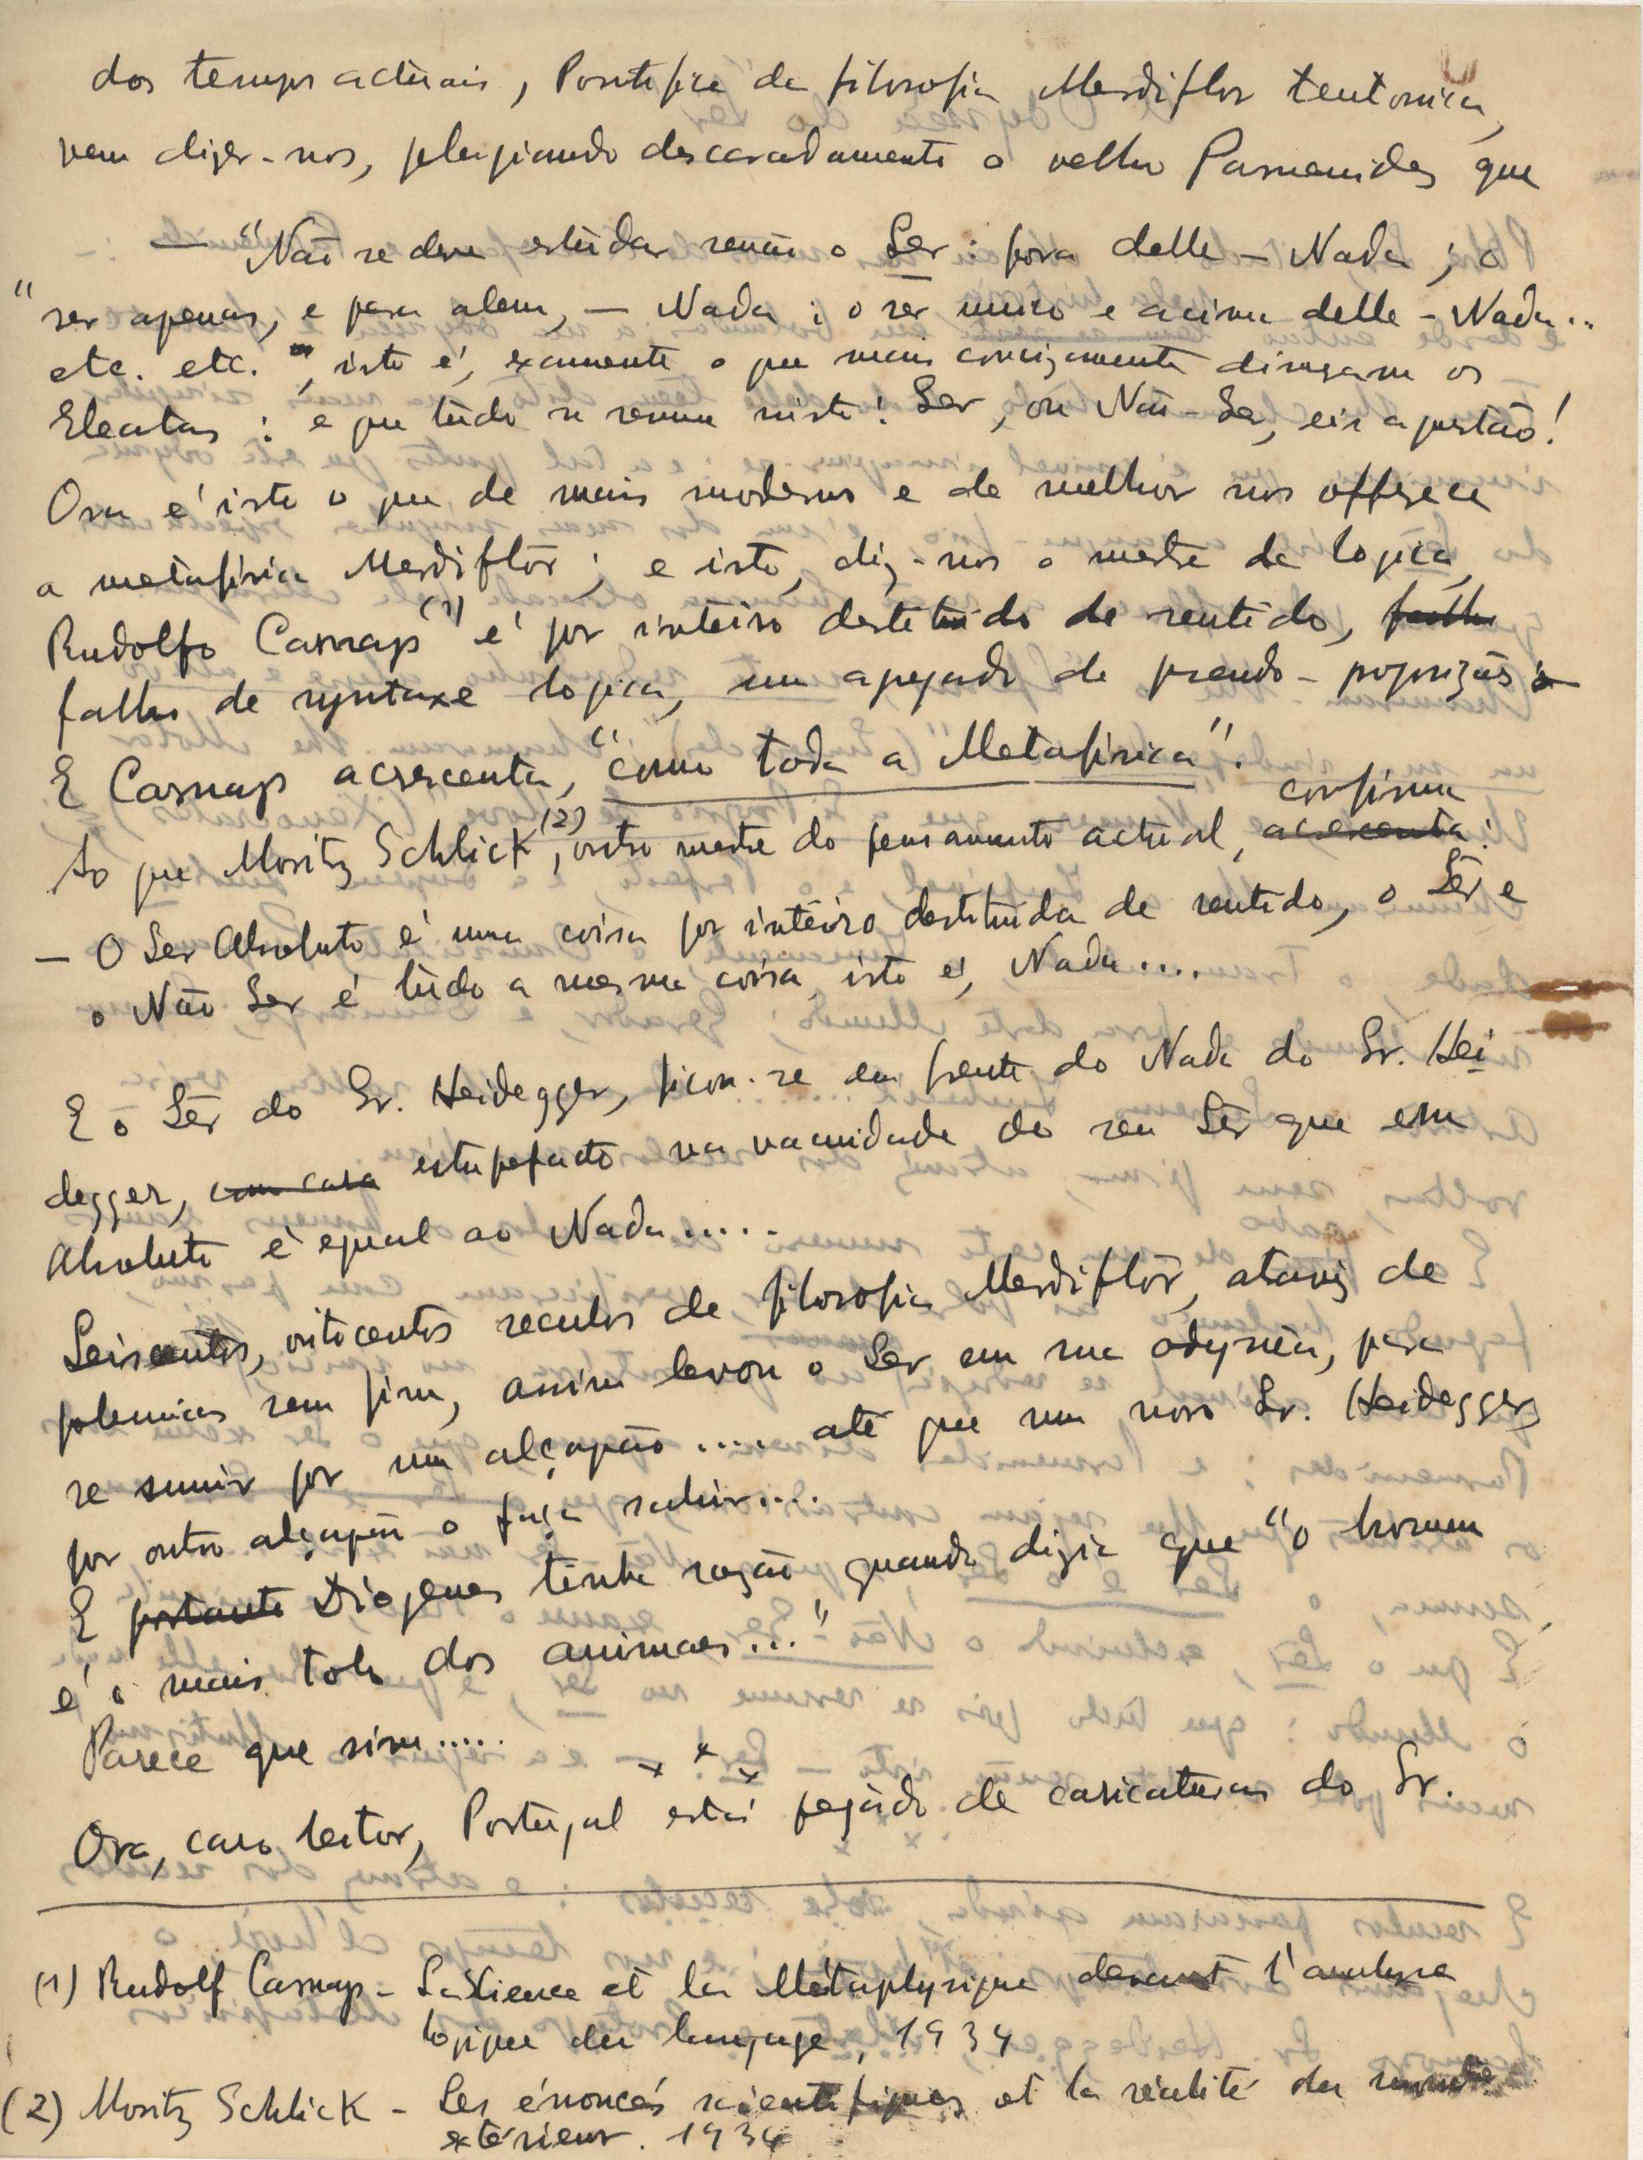 dos tempos actuais, Pontifice da filosofia Merdiflor teutonica,
vem dizer-nos, plagiando descaradamente o velho Parmenides que
— "Não se deve estudar senão o Ser: fora delle - Nada; o
" ser apenas, e para alem, — Nada: o ser unico e acima delle - Nada...
etc. etc.", isto é, examente o que mais concizamente diriam os
Eleatas: e que tudo se resume nisto: Ser, ou Não-Ser, eis a questão!
Ora é isto o que de mais moderno e de melhor nos offerece
a metafisica Merdiflôr; e isto, diz-nos o mestre da logica,
Rudolfo Carnap (1) é por inteiro destituido de sentido, falha
falho de syntaxe logica, um apegado de pseudo-proposições
E Carnap acrescenta, "como toda a Metafisica".
Ao que Moritz Schlick (2), outro mestre do pensamento actual, acrescenta confirma:
— O Ser Absoluto é uma coisa por inteiro destituida de sentido, o Sêr e
o Não Ser é tudo a mesma coisa, isto é, Nada....
E o Sêr do Sr. Heidegger, ficou-se em frente do Nada do Sr. Hei
degger, com cara estupefacto na vacuidade do seu Sêr que em
Absoluto é egual ao Nada.....
Seiscentos, oitocentos seculos de filosofia Merdiflôr, atravez de
polemicas sem fim, assim levou o Ser em sua odysseia, para
se sumir por um alçapão.... até que um novo Sr. Heidegger,
por outro alçapão o faça subir....
E portanto Diogenes tinha razão quando dizia que "o homem
é o mais tolo dos animaes..."
Parece que sim.....
× × ×
Ora, caro leitor, Portugal está pejádo de caricaturas do Sr.
(1) Rudolf Carnap - La Science et la Métaphysique devant l'analyse
logique du langage, 1934
(2) Moritz Schlick - Les énoncés scientifiques et la réalité du monde
extérieur. 1934